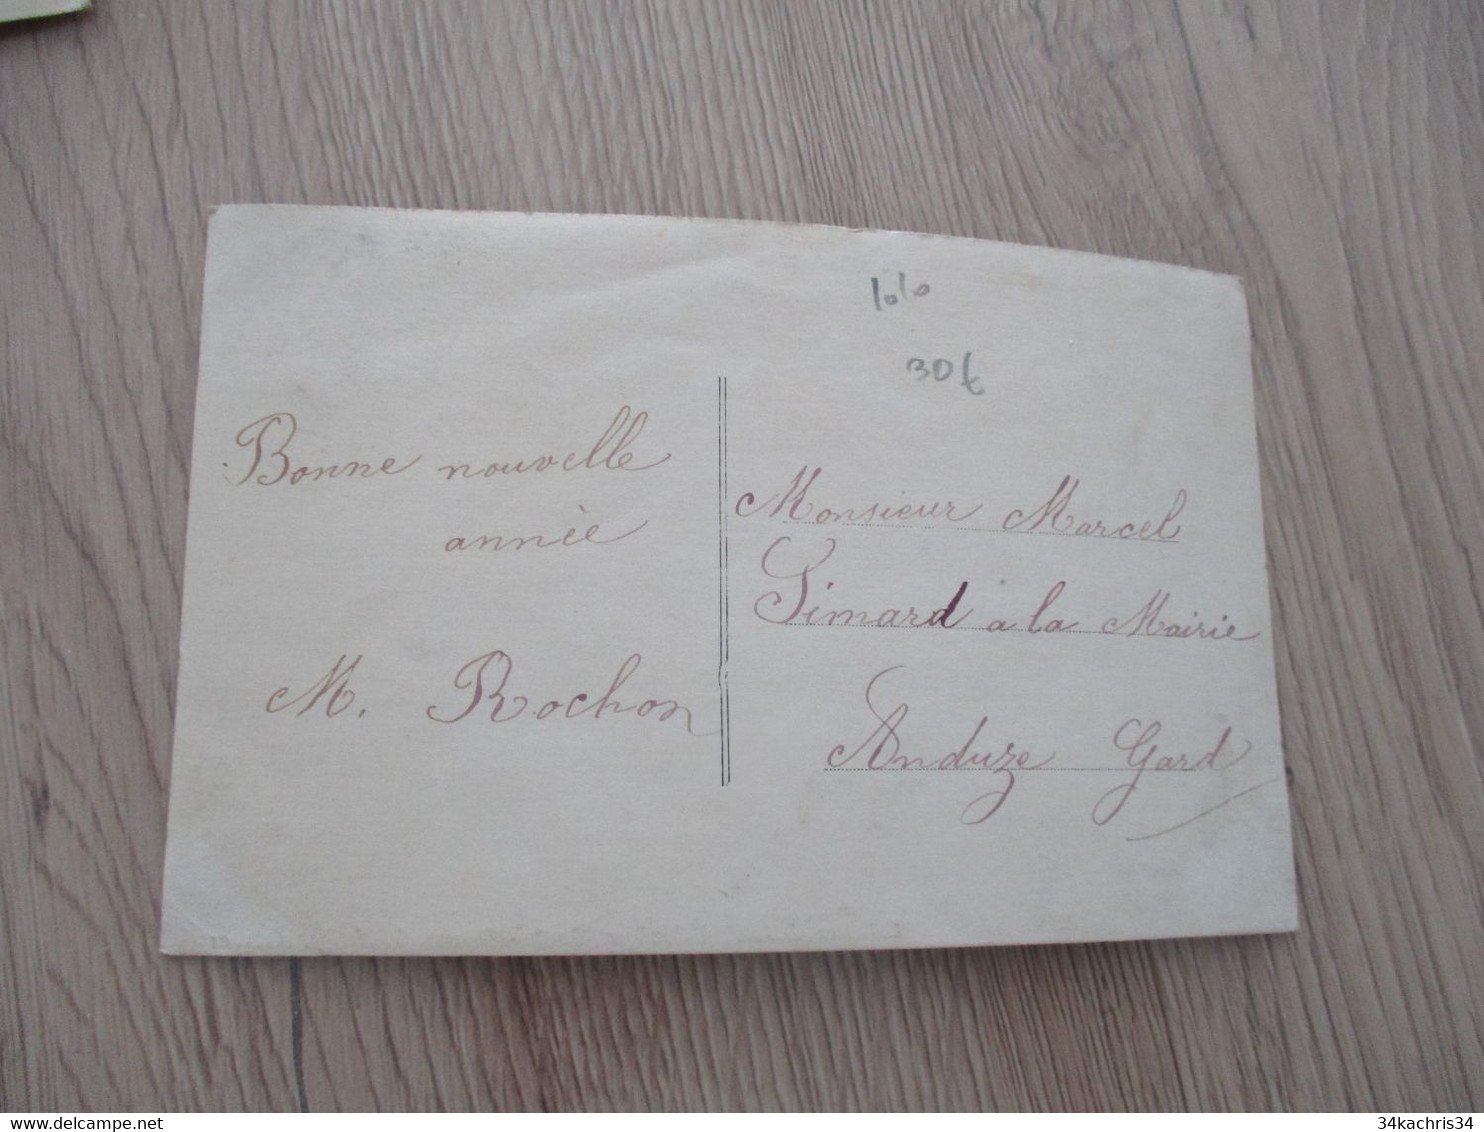 lolo
30€
Bonne nouvelle
année
M. Rochon
Monsieur Marcel
Simard a la Mairie
Anduze Gard
www.delcampe.net
34kachris34